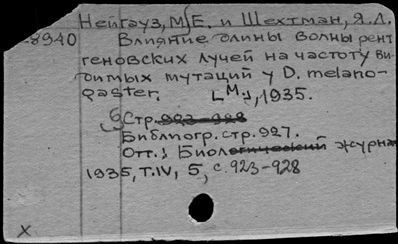 Нейгауз, М.Е. и Шехтман, Я.Л.
-8940 Влияние длины волны рент
геновских лучей на частоту ви-
димых мутаций у D. melano-
gaster. [М.], 1935.
6 Стр. 923-928
Библиогр. стр. 927.
Отт.: Биологический журнал
1935, т.IV, 5, с. 923-928
x